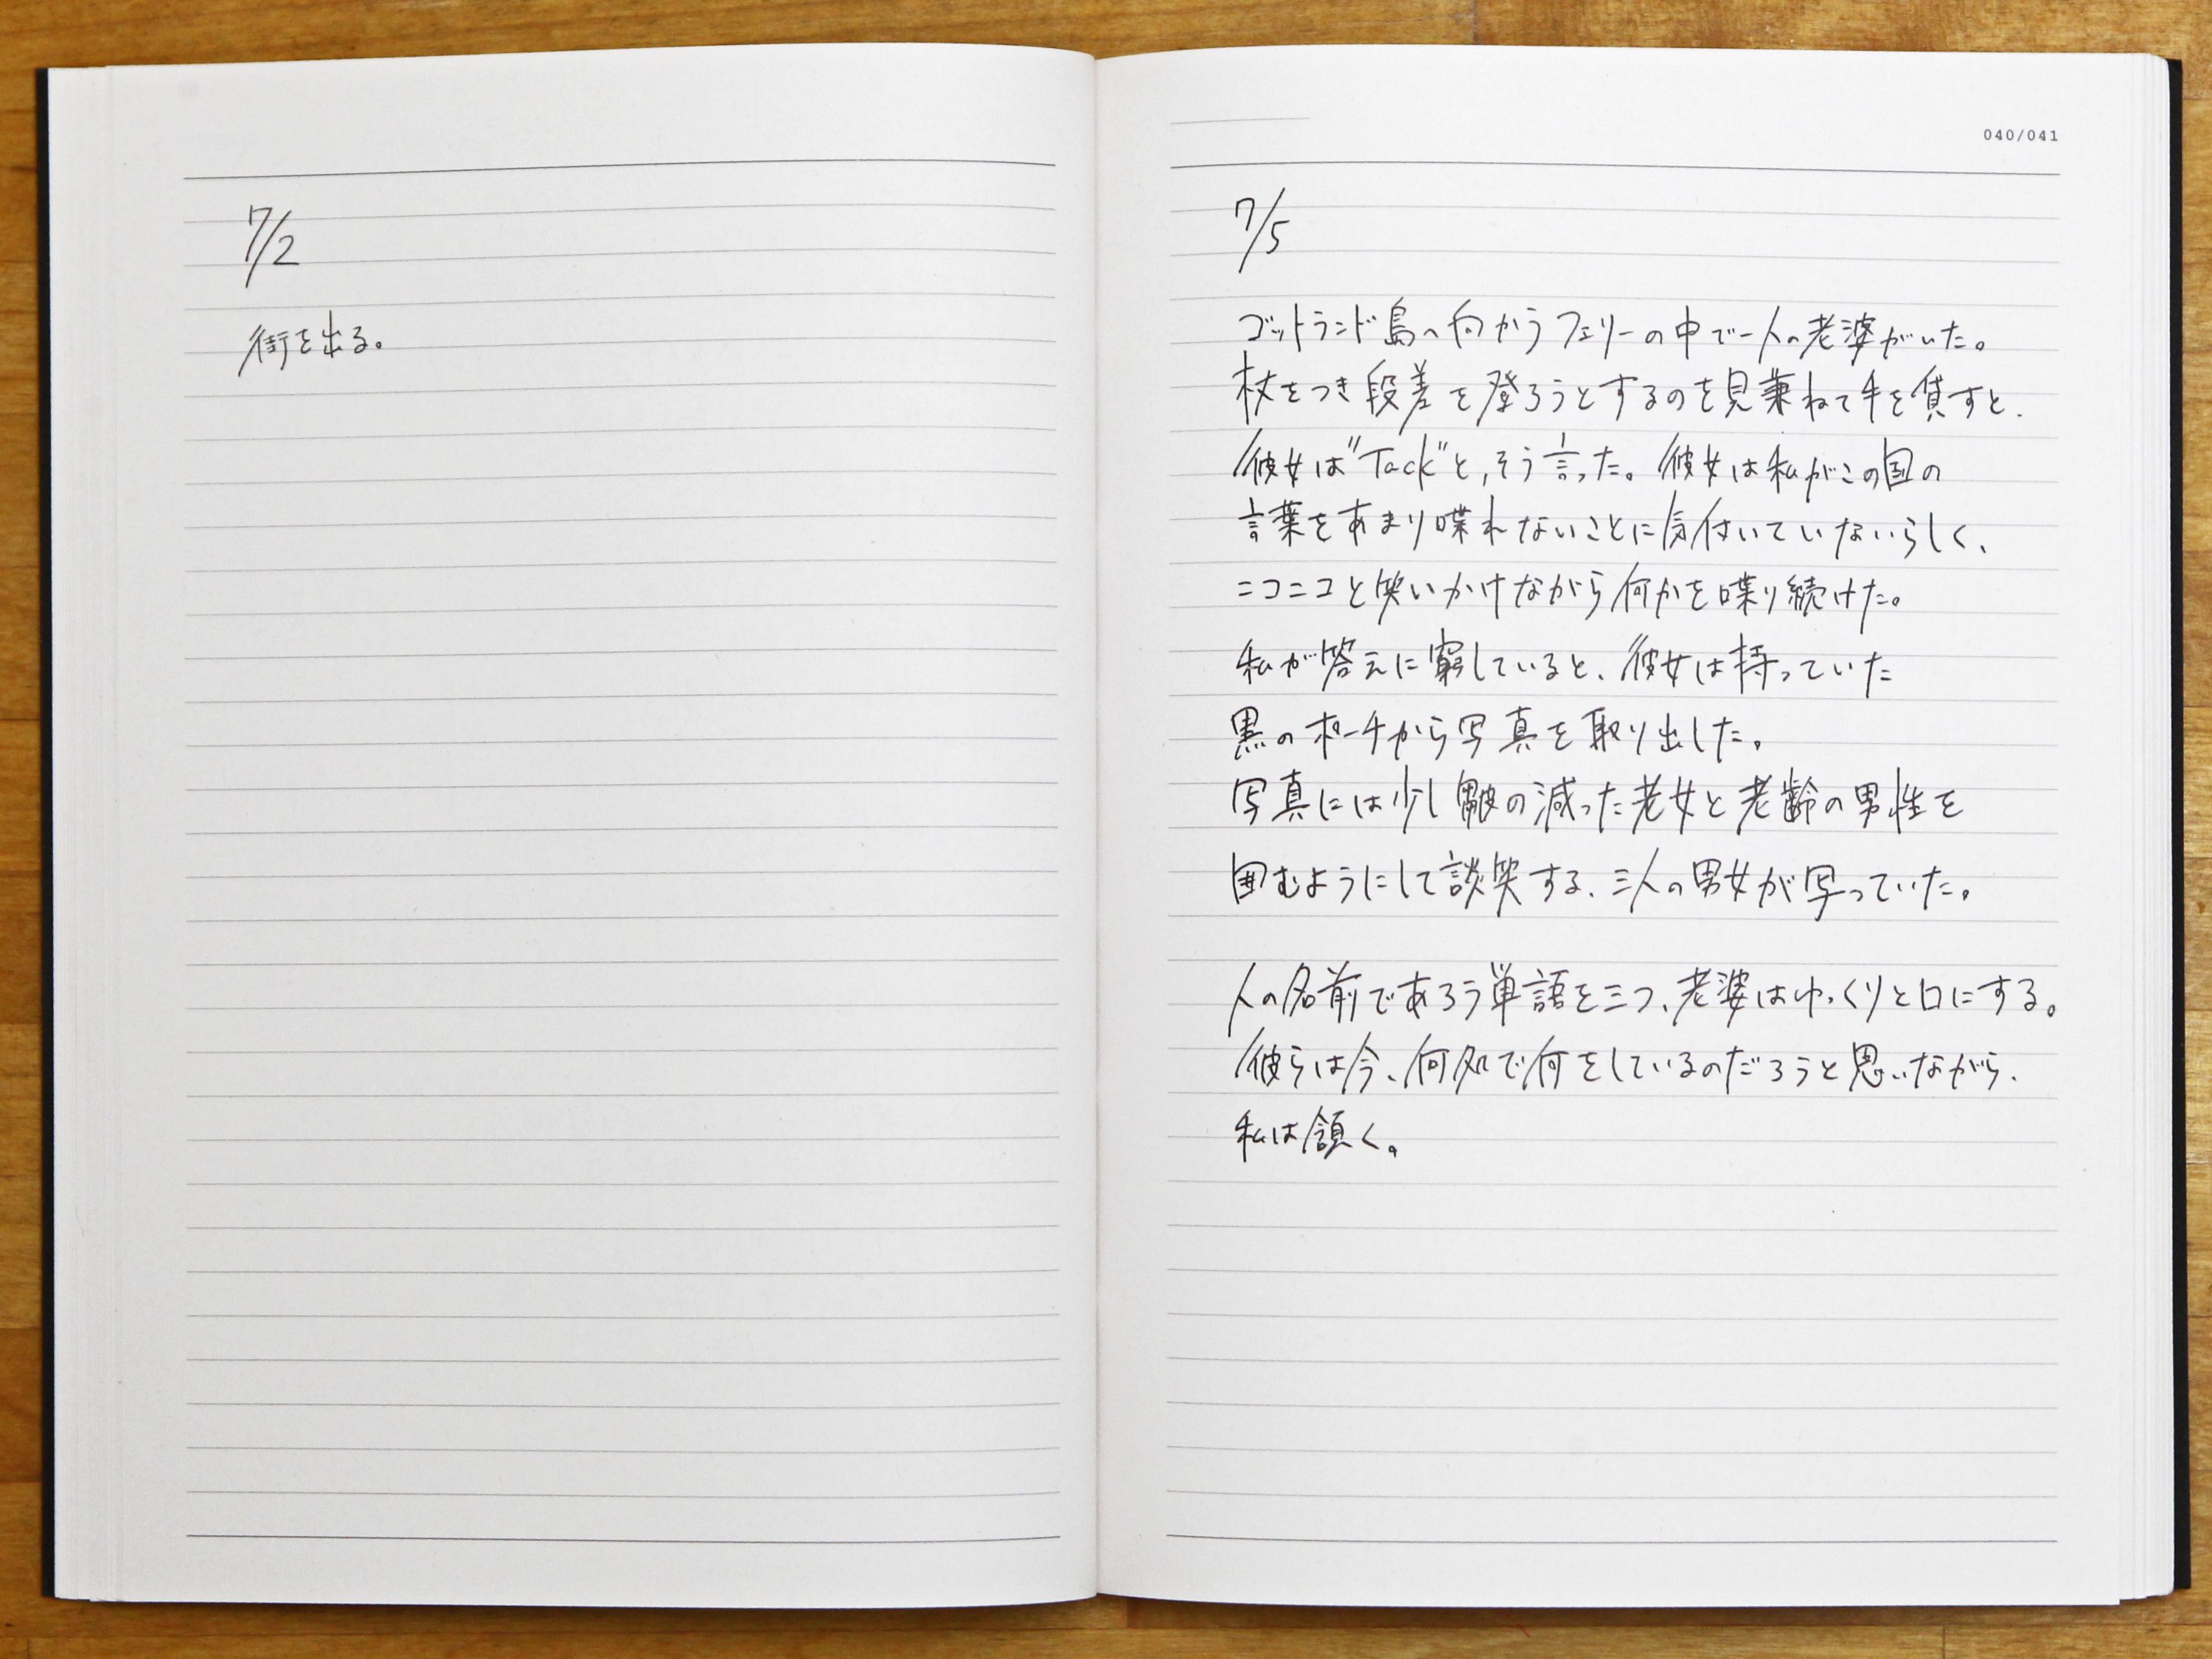 7/2
街を出る。
040/041
7/5
ゴットランド島へ向かうフェリーの中で一人の老婆がいた。
杖をつき段差を登ろうとするのを見兼ねて手を貸すと、
彼女は"Tack"と、そう言った。彼女は私がこの国の
言葉をあまり喋れないことに気付いていないらしく、
ニコニコと笑いかけながら何かを喋り続けた。
私が答えに窮していると、彼女は持っていた
黒のポーチから写真を取り出した。
写真には少し皺の減った老女と老齢の男性を
囲むようにして談笑する、三人の男女が写っていた。
人の名前であろう単語を三つ、老婆はゆっくりと口にする。
彼らは今、何処で何をしているのだろうと思いながら、
私は頷く。